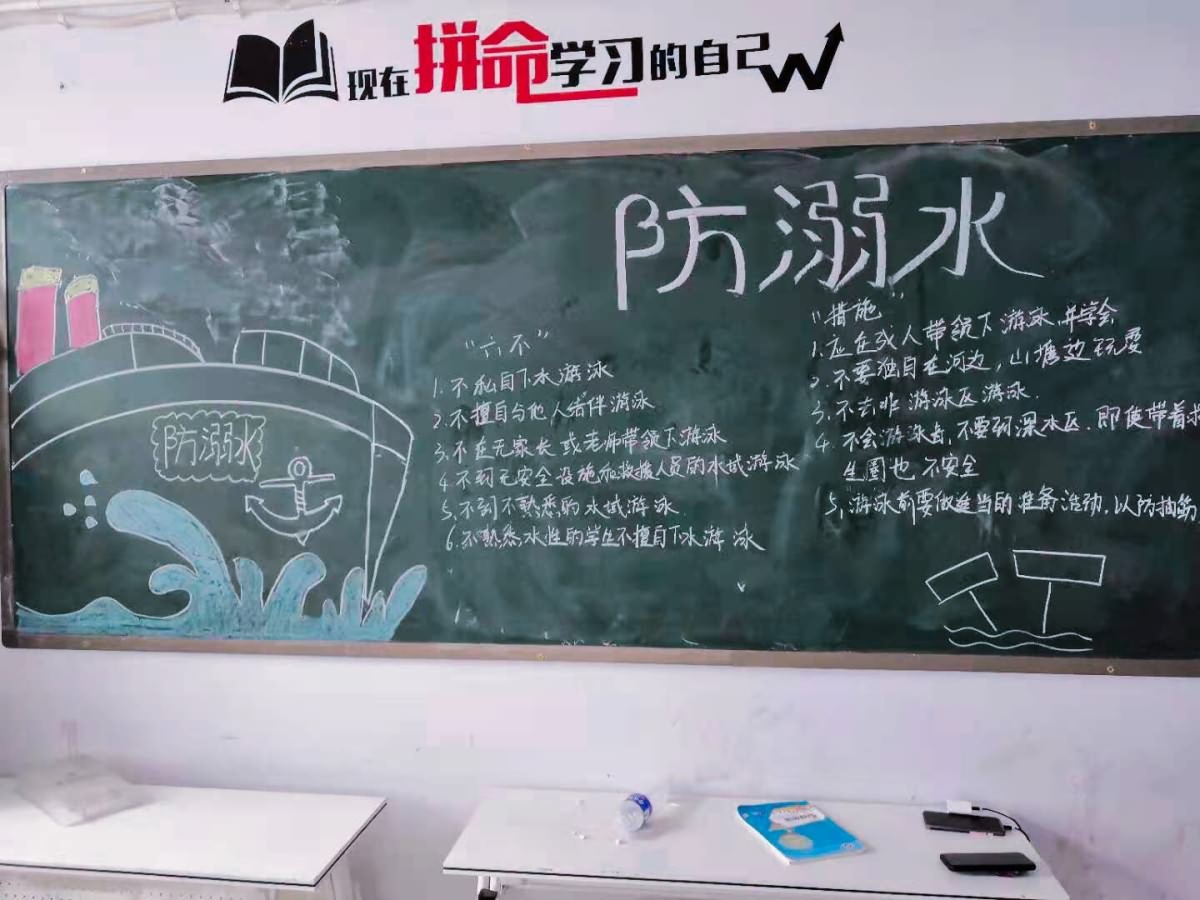 现在拼命学习的自己
防溺水
防溺水
"六不"
1.不私自下水游泳
2.不擅自与他人结伴游泳
3.不在无家长或老师带领下游泳
4.不到无安全设施和救援人员的水域游泳
5.不到不熟悉的水域游泳
6.不熟悉水性的学生不擅自下水游泳
"措施"
1.应在成人带领下游泳,并学会
2.不要独自在河边,山塘边玩耍
3.不去非游泳区游泳.
4.不会游泳者,不要到深水区.即使带着救
生圈也不安全
5,游泳前要做适当的准备活动,以防抽筋